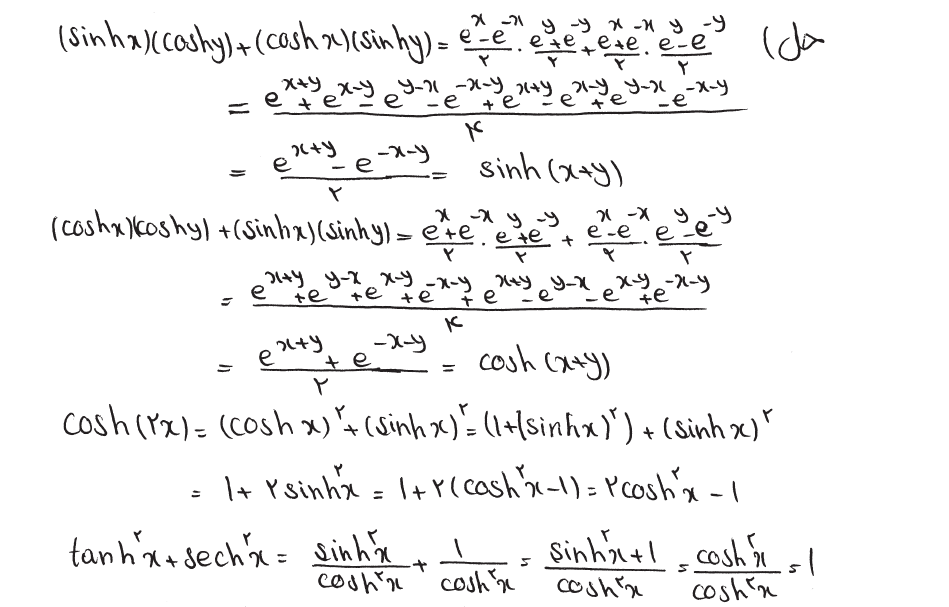 (sinhx)(coshy)+(coshx)(sinhy) = (e^x-e^-x)/۲ . (e^y+e^-y)/۲ + (e^x+e^-x)/۲ . (e^y-e^-y)/۲
= (e^x+y + e^x-y - e^y-x - e^-x-y + e^x+y - e^x-y + e^y-x - e^-x-y)/۴
= (e^x+y - e^-x-y)/۲ = sinh(x+y)
(coshx)(coshy)+(sinhx)(sinhy) = (e^x+e^-x)/۲ . (e^y+e^-y)/۲ + (e^x-e^-x)/۲ . (e^y-e^-y)/۲
= (e^x+y + e^y-x + e^x-y + e^-x-y + e^x+y - e^y-x - e^x-y + e^-x-y)/۴
= (e^x+y + e^-x-y)/۲ = cosh(x+y)
cosh(۲x) = (coshx)^۲ + (sinhx)^۲ = (1+(sinhx)^۲) + (sinhx)^۲
= 1+۲sinh^۲x = 1+۲(cosh^۲x-1) = ۲cosh^۲x - 1
tanh^۲x + sech^۲x = sinh^۲x/cosh^۲x + 1/cosh^۲x = (sinh^۲x+1)/cosh^۲x = cosh^۲x/cosh^۲x = 1